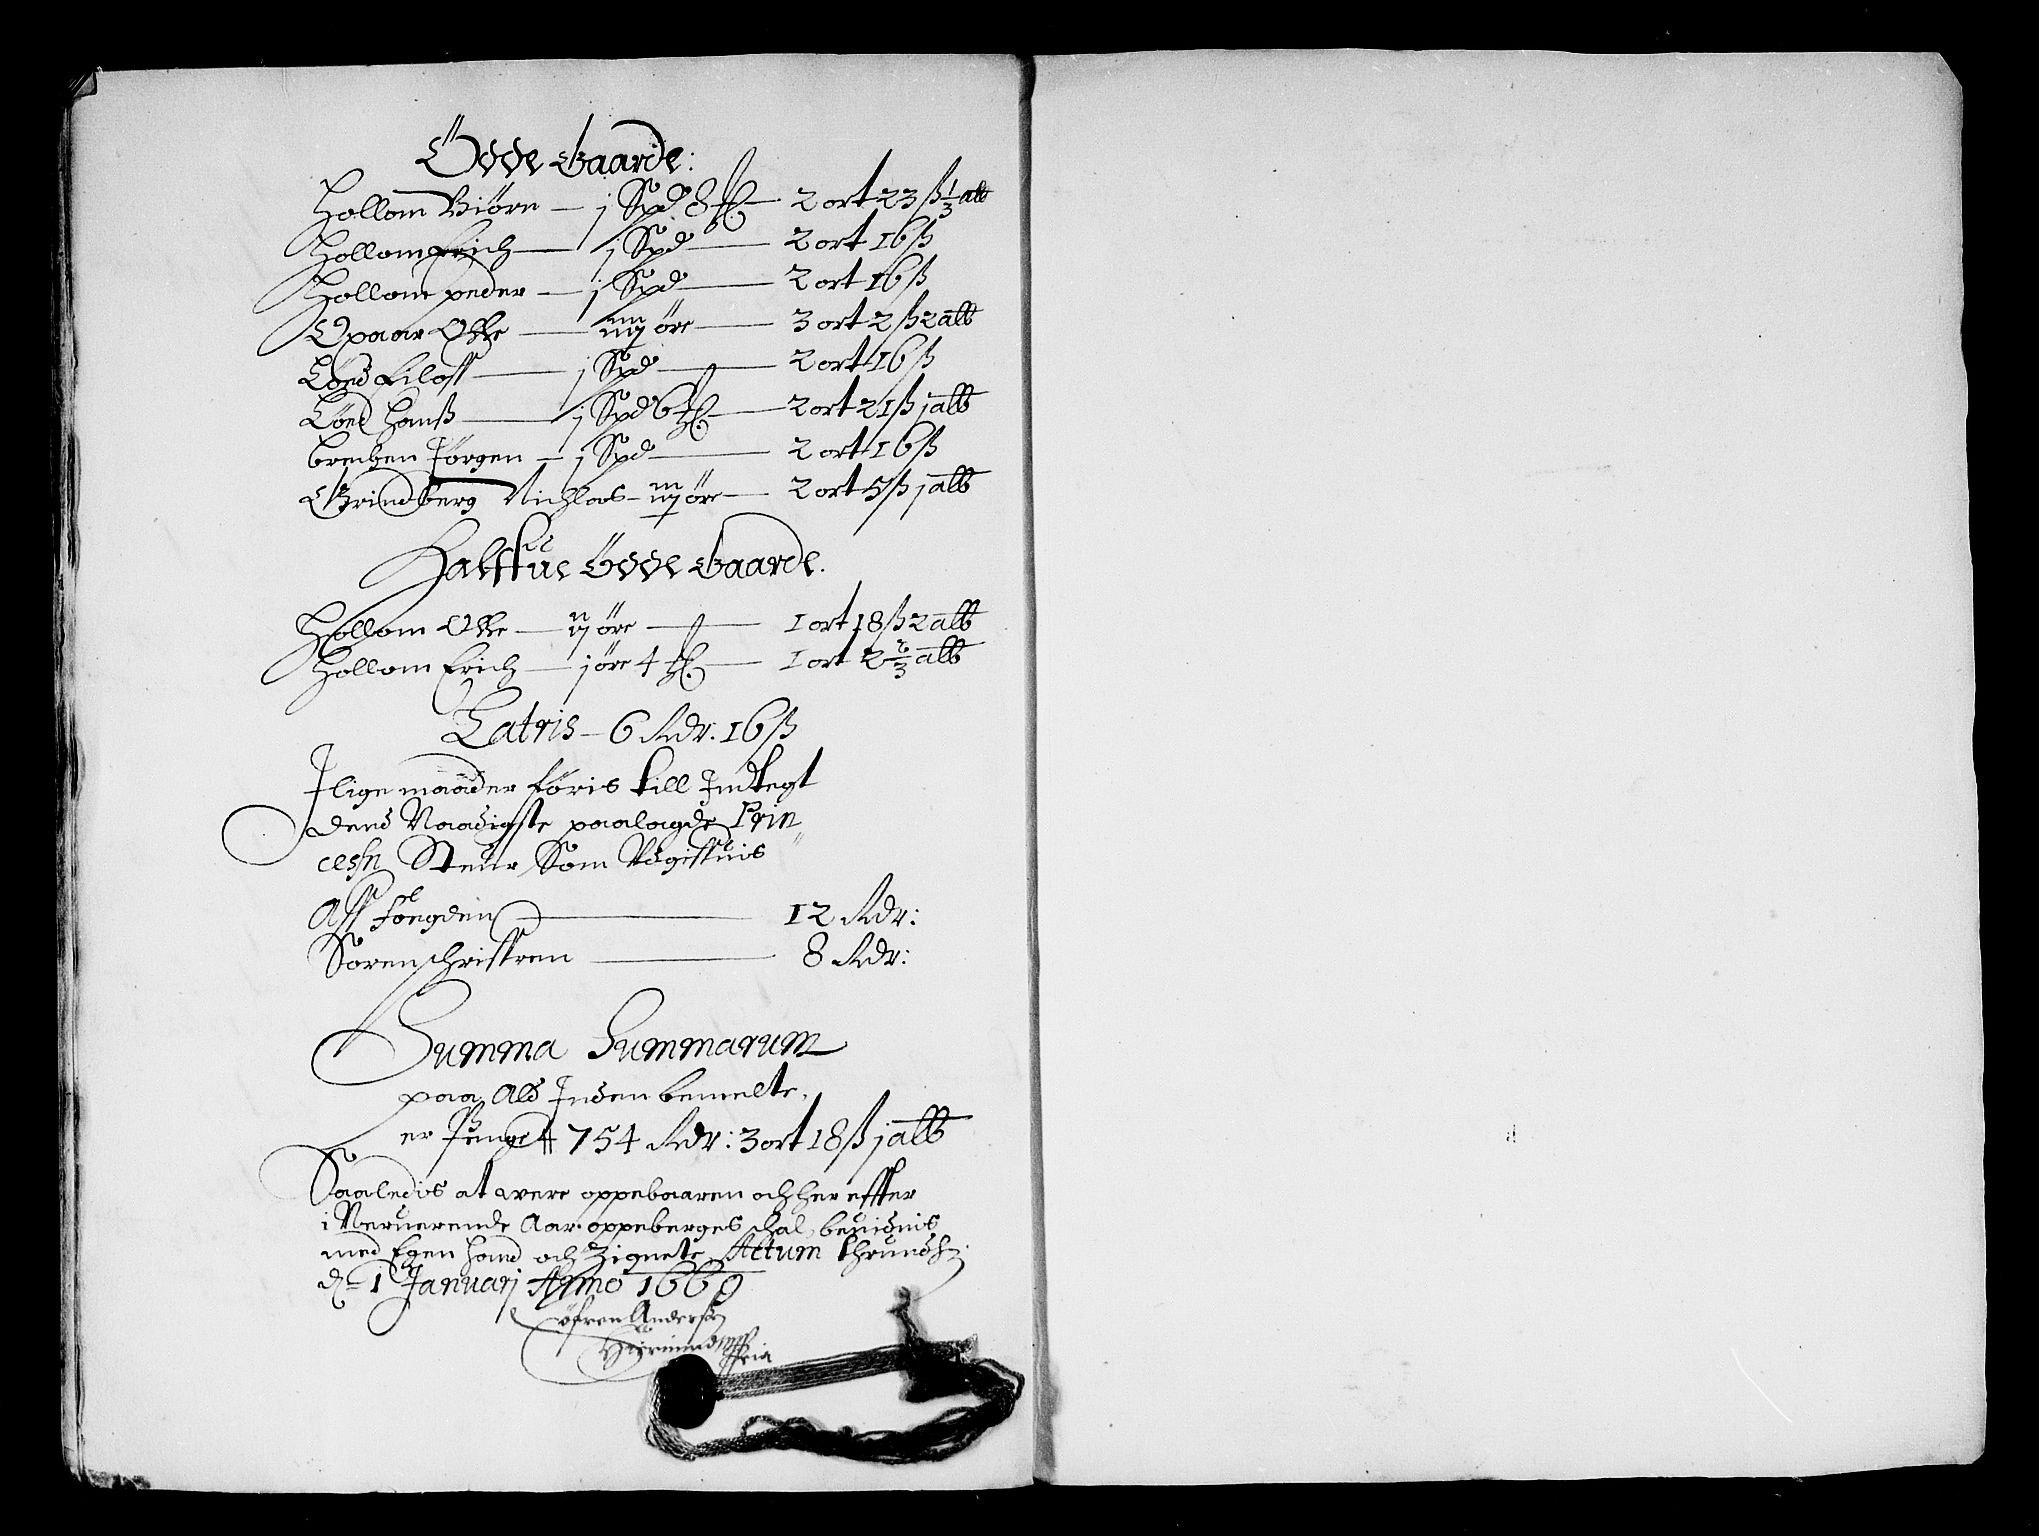 Öde Gaarde:
Hollom Biörn — j Spd 8 — 2 ort 23 ß 1/3 alb
Hollom Erich — j Spd — 2 ort 16 ß
Hollom peder — j Spd — 2 ort 16 ß
Opaar Olle — öre — 3 ort 2 ß 2 alb
Löed Eiloff — j Spd — 2 ort 16 ß
Löed Hanß — j Spd 6 — 2 ort 21 ß j alb
brechen Jörgen — j Spd — 2 ort 16 ß
Grindberg Nichlas — öre — 2 ort 5 ß j alb
Halffue Öde Gaarde.
Hollom Olle — öre — 1 ort 18 ß 2 alb
Hollom Erich — j öre 4 — 1 ort 2 2/3 alb
Latris — 6 Rdr. 16 ß
J lige maader föris till Indtegt
dend Naadigste paalagde Prin
cessn Steur Som Udgiffuis
Aff Foegden — 12 Rdr:
Sorenschriffren — 8 Rdr:
Summa Summarum
paa Ald Inden bemelte,
er Penge 754 Rdr: 3 ort 18 ß j alb
Saaledis at were oppebaaren och her effter
i Neruerende Aar oppeberges schal, beuidnis
med Egen Hand och Zignete Actum Thrundh:
d. 1 Januarj Anno 1660
Söfren Andersen